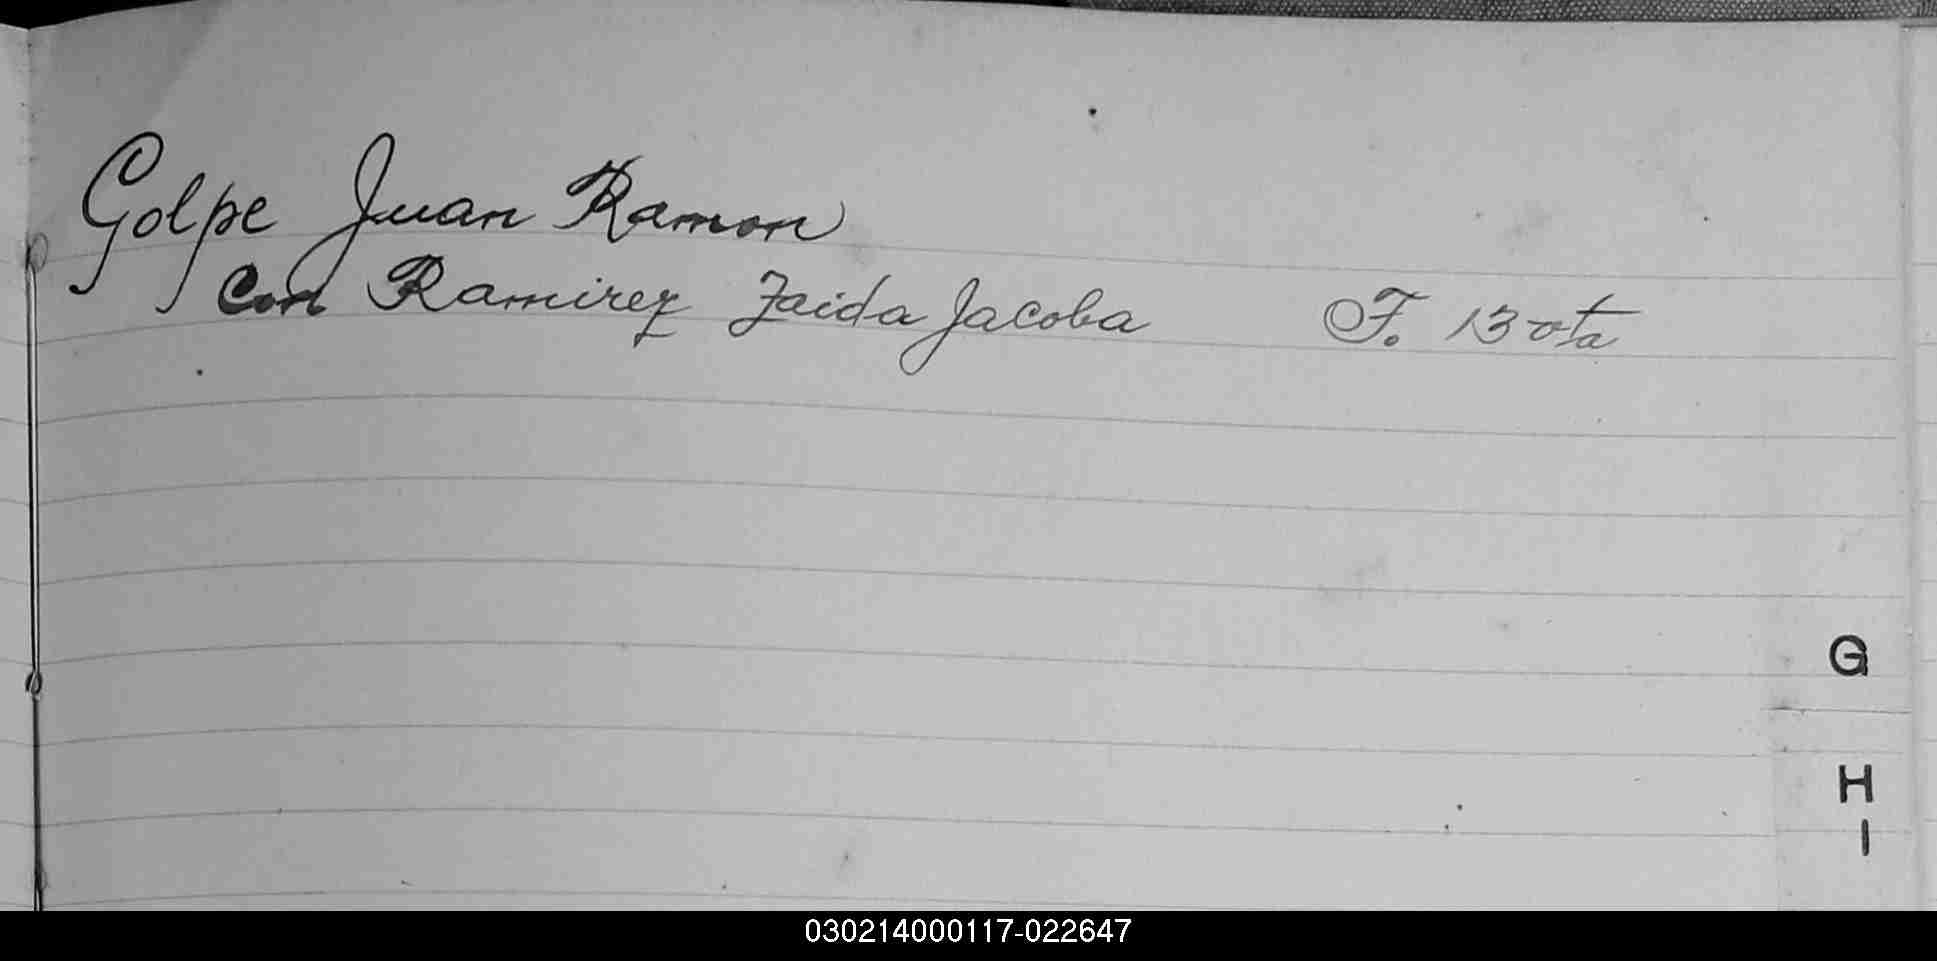 Golpe Juan Ramon
Con Ramirez Zaida Jacoba F. 13 vta
G
H
I
030214000117-022647